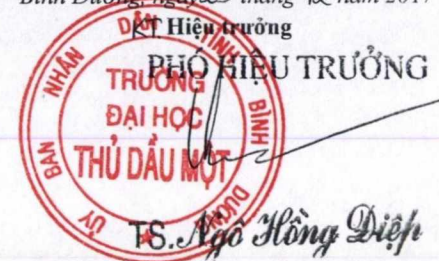 Bình Dương, ngày tháng 12 năm 2017
KT Hiệu trưởng
PHÓ HIỆU TRƯỞNG
ỦY BAN NHÂN DÂN TỈNH BÌNH DƯƠNG
TRƯỜNG
ĐẠI HỌC
THỦ DẦU MỘT
TS. Ngô Hồng Điệp